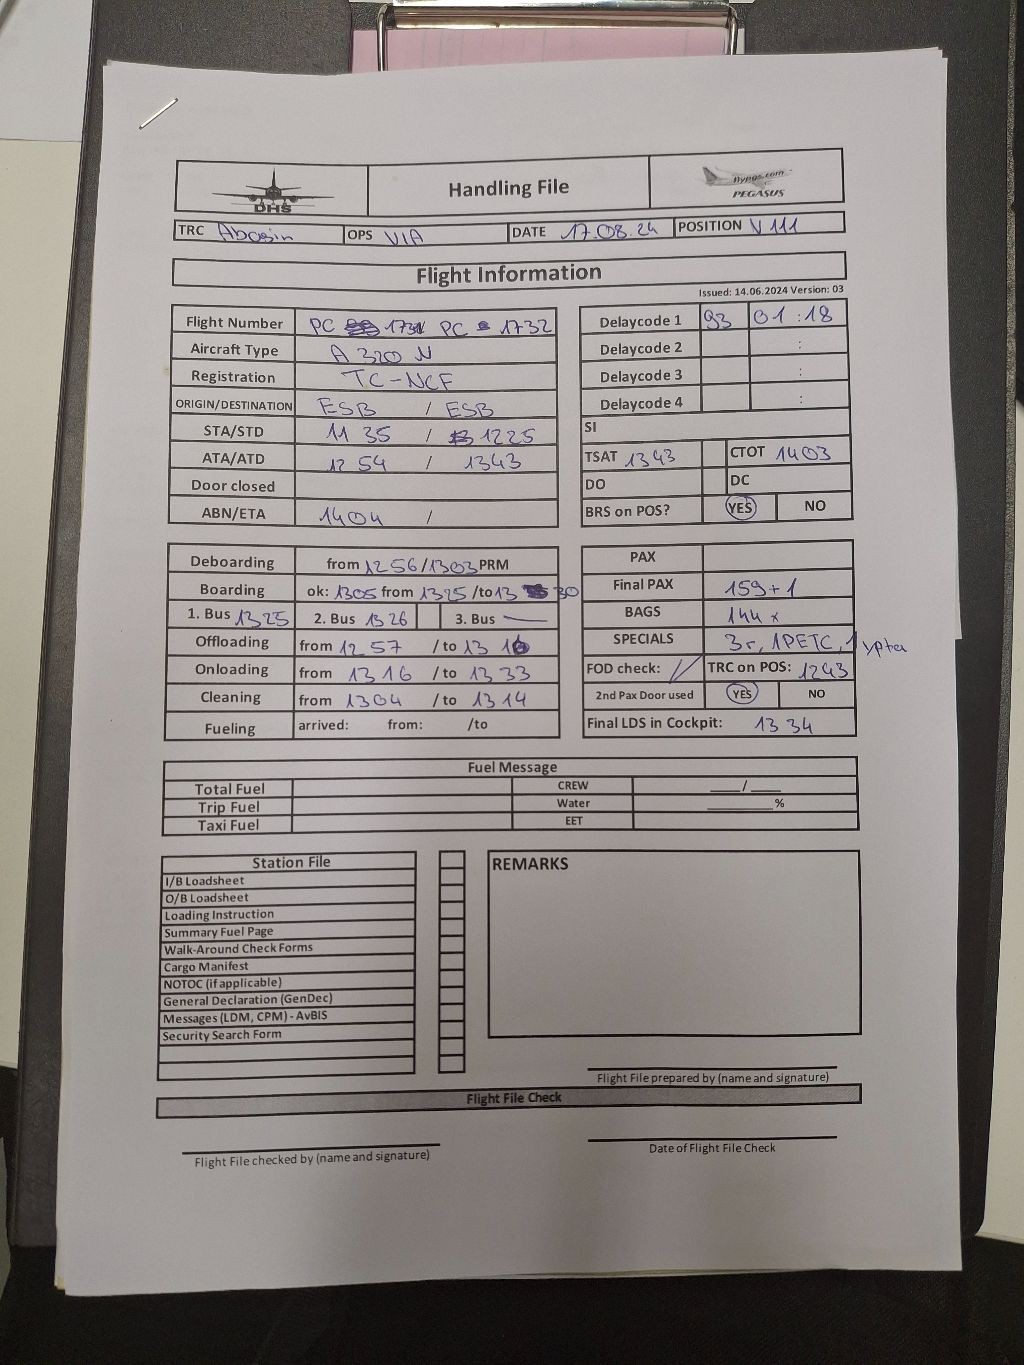 DHS
Handling File
flypgs.com
PEGASUS
TRC Abasin OPS VIA DATE 17.08.24 POSITION V 111
Flight Information
Issued: 14.06.2024 Version: 03
Flight Number PC 1731 PC 1732
Aircraft Type A 320 N
Registration TC-NCF
ORIGIN/DESTINATION ESB / ESB
STA/STD 11 35 / 1225
ATA/ATD 12 54 / 1343
Door closed
ABN/ETA 1404 /
Delaycode 1 93 01:18
Delaycode 2 :
Delaycode 3 :
Delaycode 4 :
SI
TSAT 1343 CTOT 1403
DO DC
BRS on POS? YES NO
Deboarding from 12 56/1303 PRM
Boarding ok: 1305 from 1325 /to 13 30
1. Bus 1325 2. Bus 1326 3. Bus —
Offloading from 12 57 /to 13 16
Onloading from 13 16 /to 13 33
Cleaning from 1304 /to 13 14
Fueling arrived: from: /to
PAX
Final PAX 159+1
BAGS 144 x
SPECIALS 3r, 1PETC, 1
FOD check: / TRC on POS: 1243
2nd Pax Door used YES NO
Final LDS in Cockpit: 13 34
Fuel Message
Total Fuel CREW ____/____
Trip Fuel Water ________%
Taxi Fuel EET
Station File
I/B Loadsheet
O/B Loadsheet
Loading Instruction
Summary Fuel Page
Walk-Around Check Forms
Cargo Manifest
NOTOC (if applicable)
General Declaration (GenDec)
Messages (LDM, CPM) - AvBIS
Security Search Form
REMARKS
Flight File prepared by (name and signature)
Flight File Check
Flight File checked by (name and signature)
Date of Flight File Check